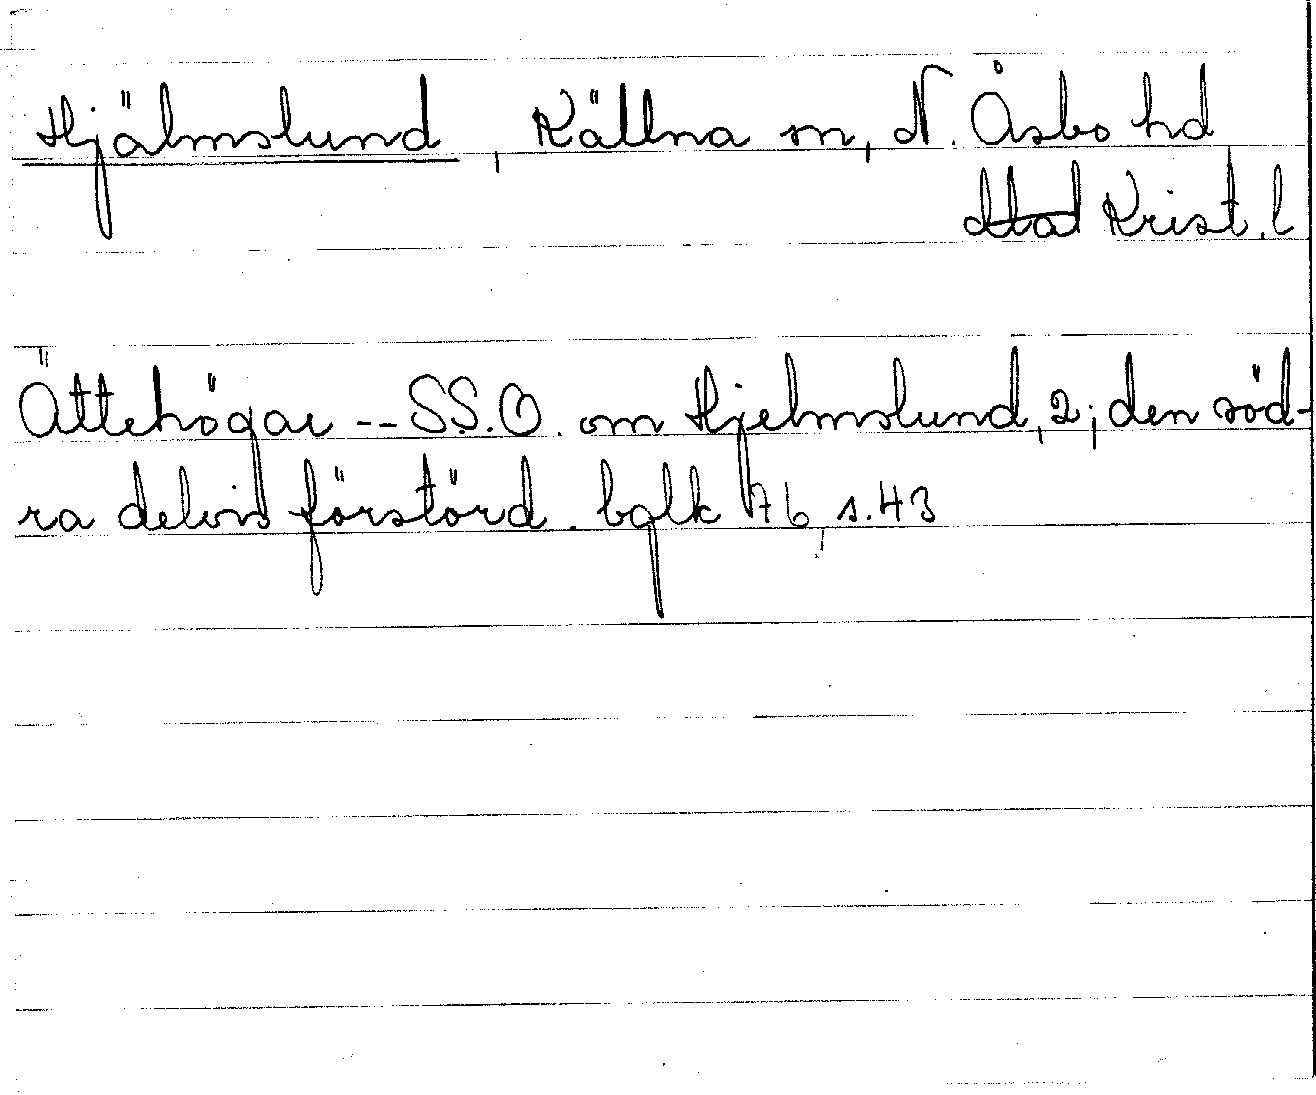 Hjälmslund, Källna sn, N. Åsbo hd
Krist. l
Ättehögar -- S.S.O. om Hjelmslund, 2; den söd-
ra delvis förstörd. bglk 76, s. 43